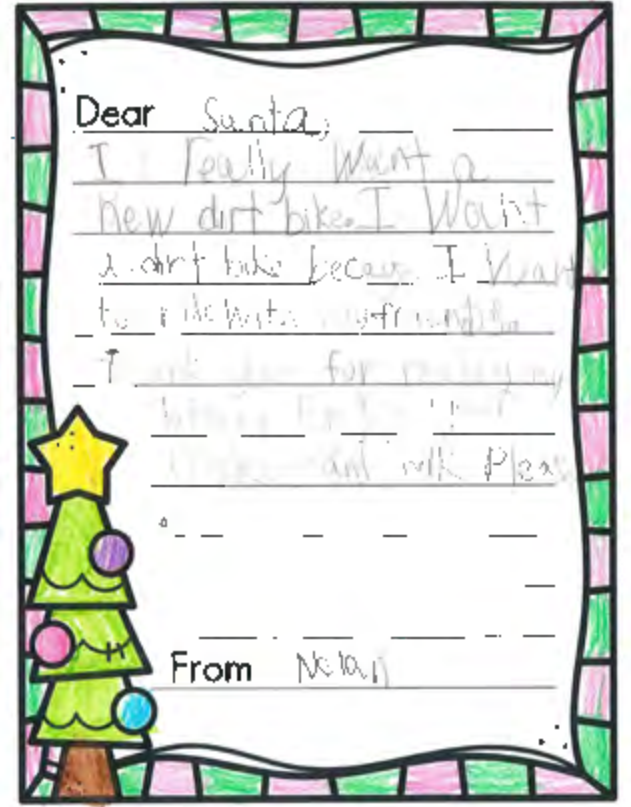 Dear Santa,
I really want a
new dirt bike. I want
a dirt bike becaus I want
to ride with my friends.
for my
and milk Pleas
From Nolan